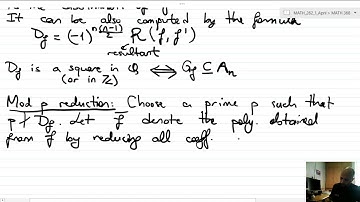 It can be also computed by the formula
D_f = (-1)^{n(n-1)/2} R(f, f')
resultant
D_f is a square in Q ⟺ G_f ⊆ A_n
(or in Z)
Mod p reduction: Choose a prime p such that
p ∤ D_f. Let f̄ denote the poly. obtained
from f by reducing all coeff.